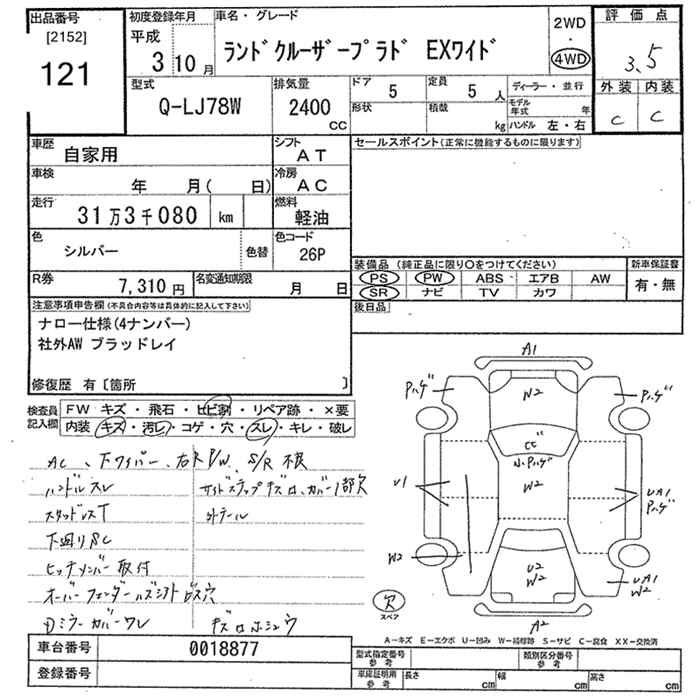 出品番号
[2152]
121
初度登録年月
平成
3 10 月
車名・グレード
ランドクルーザープラド EXワイド
2WD
・
4WD
評価点
3.5
外装 内装
C C
型式
Q-LJ78W
排気量
2400
CC
ドア 5
定員 5 人
形状
積載 kg
ディーラー・並行
モデル年式 年
ハンドル 左・右
車歴 自家用
シフト AT
車検 年 月( 日)
冷房 AC
走行 31万3千080 km
燃料 軽油
色 シルバー 色替
色コード 26P
R券 7,310円
名変通知期限 月 日
セールスポイント(正常に機能するものに限ります)
装備品 (純正品に限り○をつけてください)
PS PW ABS エアB AW
SR ナビ TV カワ
新車保証書
有・無
後日品
注意事項申告欄(不具合内容等は具体的に記入して下さい)
ナロー仕様(4ナンバー)
社外AW ブラッドレイ
修復歴 有〔箇所 〕
検査員記入欄
FW キズ・飛石・ヒビ割・リペア跡・×要
内装 キズ・汚レ・コゲ・穴・スレ・キレ・破レ
AC、下ワイパー、右R P/W、S/R 不良
ハンドルスレ
サイドステップキズ、カバー1部欠
スタッドレスT
外テール
下廻りSC
ヒッチメンバー取付
オーバーフェンダーハズシアト
ビス穴
Dミラーカバーワレ
A1
Pハゲ
W2
Pハゲ
CC
W2
U1
UA1
Pハゲ
W2
U2
W2
UA1
W2
A2
欠
スペア
A−キズ E−エクボ U−凹み W−補修跡 S−サビ C−腐食 XX−交換済
車台番号 0018877
登録番号
型式指定番号 参考
類別区分番号 参考
車庫証明用 参考
長さ cm
幅 cm
高さ cm